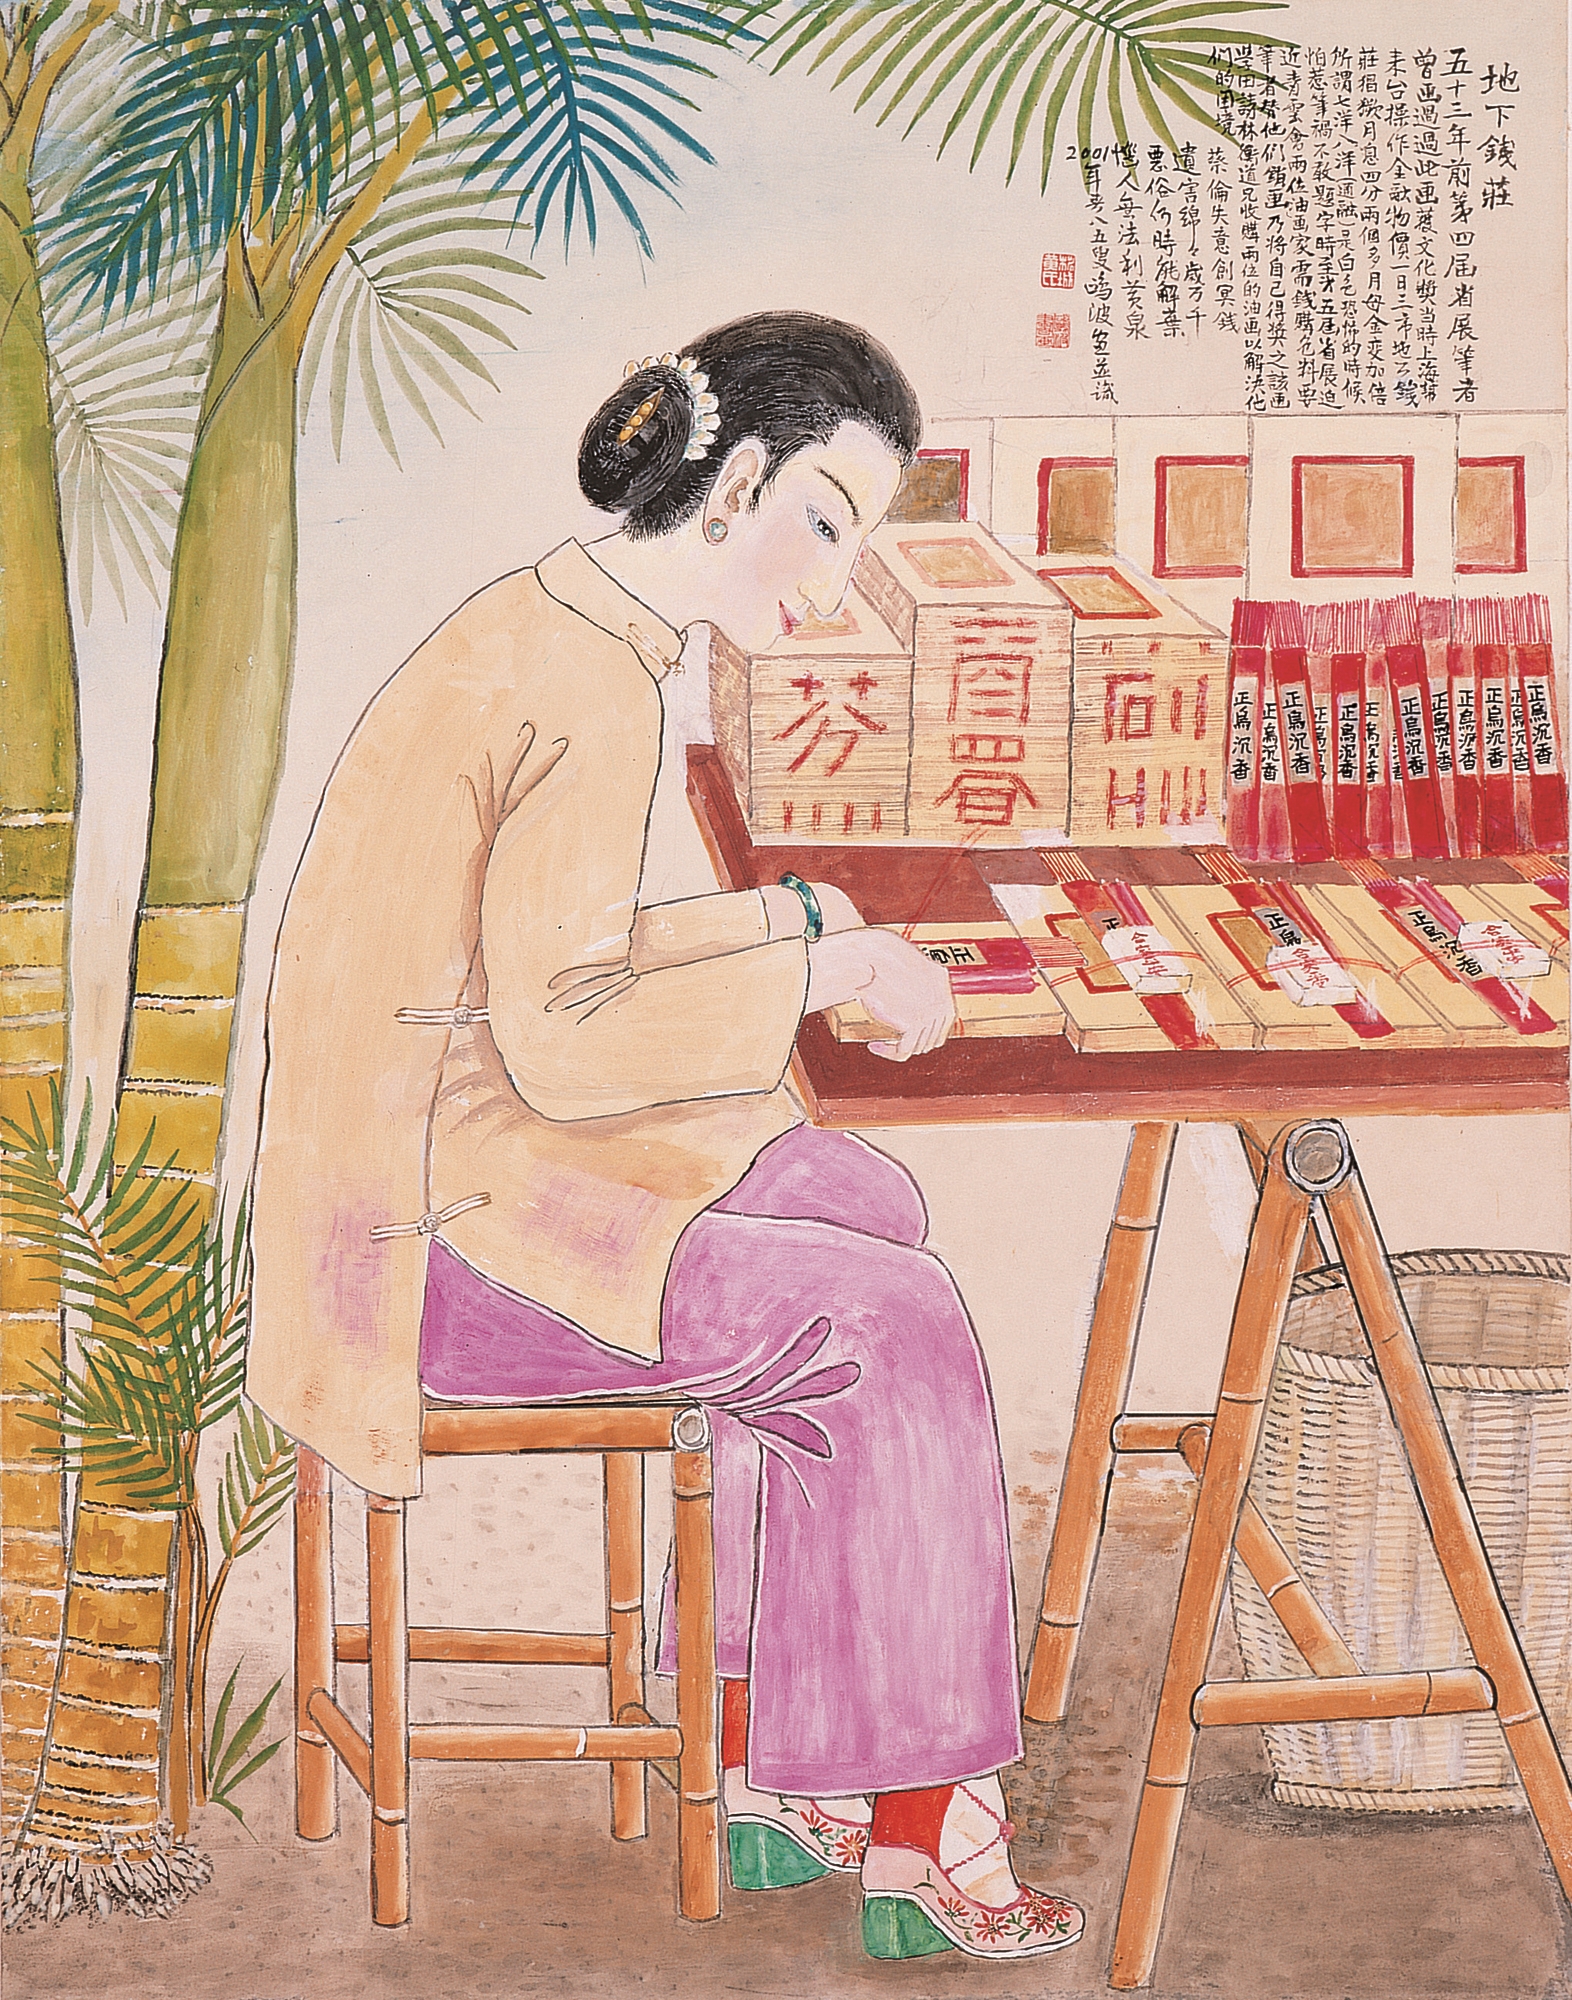 地下錢莊
五十三年前第四屆省展筆者
曾画過過此画獲文化獎当時上海幫
來台操作金融物價一日三市地下錢
莊猖獗月息四分兩個多月母金変加倍
所謂七洋八洋通融是白色恐怖的時候
怕惹筆禍不敢題字時至第五屆省展迫
近青雲會兩位油画家需錢購色料要
筆者替他们銷画乃將自己得獎之該画
學田請林衡道兄收購兩位的油画以解決他
们的困境
蔡倫失意創冥錢
遺害綿々歲万千
惡俗何時能解葉
惟人無法利黄泉
2001年 八五叟鳴波画並識
芬
正烏沉香
正烏沉香
正烏沉香
正烏沉香
正烏沉香
正烏沉香
正烏沉香
正烏沉香
正烏沉香
正烏沉香
正烏
正烏沉香